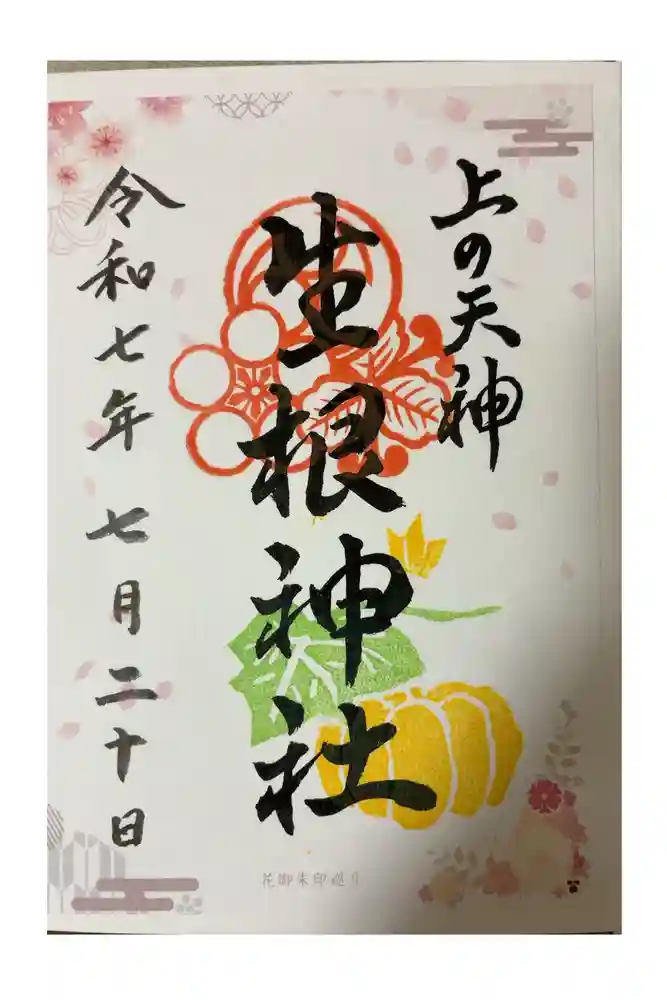 上の天神
生根神社
令和七年 七月二十日
花御朱印巡り